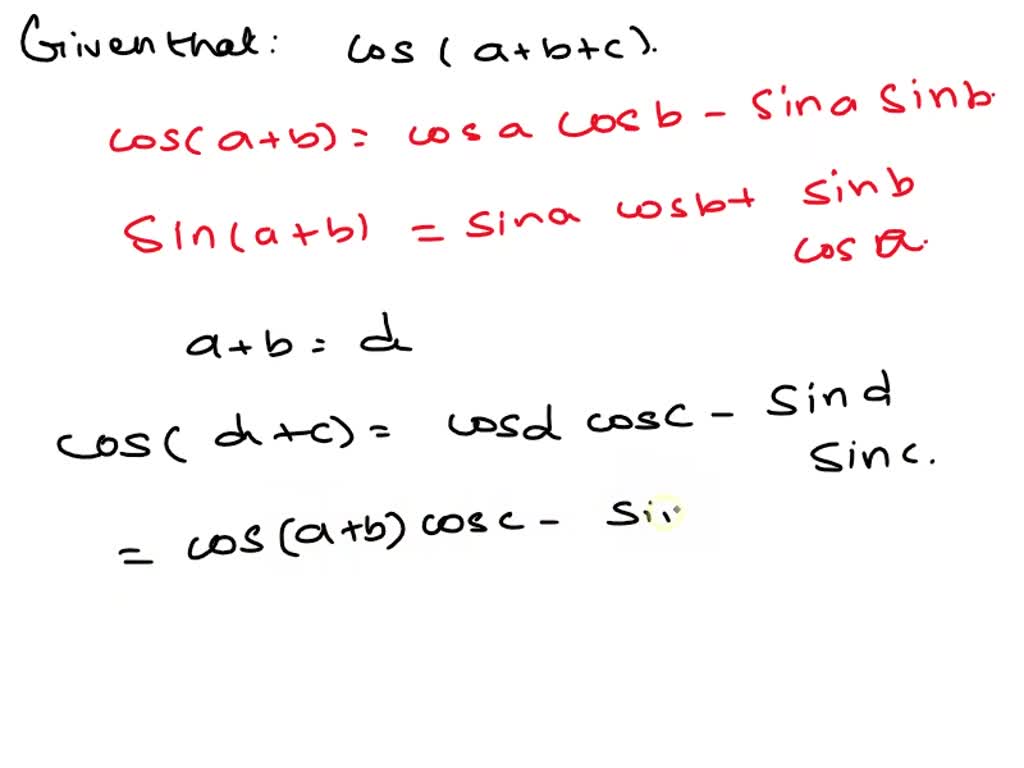 Given that: cos (a+b+c).
cos(a+b) = cos a cos b - sin a sin b.
sin(a+b) = sin a cos b + sin b
cos a.
a+b = d
cos( d+c) = cosd cosc - sin d
sin c.
= cos(a+b) cos c - sin